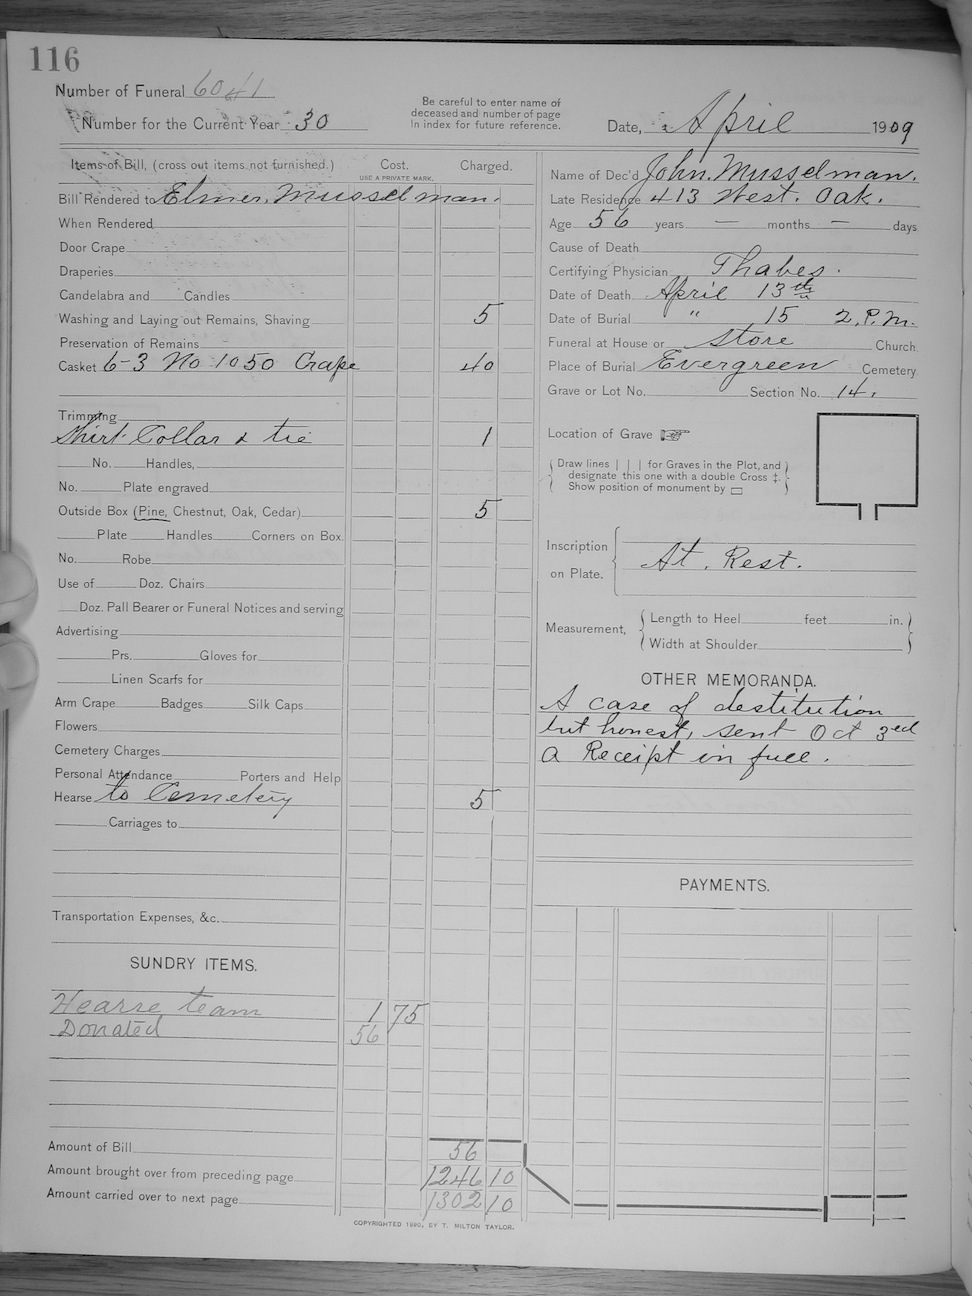 116
Number of Funeral 6041
Number for the Current Year 30
Be careful to enter name of
deceased and number of page
in index for future reference.
Date, April 1909
Items of Bill, (cross out items not furnished.) Cost. Charged.
USE A PRIVATE MARK.
Bill Rendered to Elmer Musselman.
When Rendered
Door Crape
Draperies
Candelabra and Candles
Washing and Laying out Remains, Shaving 5
Preservation of Remains
Casket 6-3 No 1050 Crape 40
Trimming
Shirt Collar & tie 1
No. Handles,
No. Plate engraved
Outside Box (Pine, Chestnut, Oak, Cedar) 5
Plate Handles Corners on Box.
No. Robe
Use of Doz. Chairs
Doz. Pall Bearer or Funeral Notices and serving
Advertising
Prs. Gloves for
Linen Scarfs for
Arm Crape Badges Silk Caps
Flowers
Cemetery Charges
Personal Attendance Porters and Help
Hearse to Cemetery 5
Carriages to
Transportation Expenses, &c.
SUNDRY ITEMS.
Hearse team 1 75
Donated 56
Amount of Bill 56
Amount brought over from preceding page 1246 10
Amount carried over to next page 1302 10
COPYRIGHTED 1890, BY T. MILTON TAYLOR.
Name of Dec'd John. Musselman.
Late Residence 413 West. Oak.
Age 56 years — months — days
Cause of Death
Certifying Physician Thabes.
Date of Death April 13th
Date of Burial " 15 2. P.M.
Funeral at House or Store Church.
Place of Burial Evergreen Cemetery
Grave or Lot No. Section No. 14.
Location of Grave
Draw lines | | | for Graves in the Plot, and
designate this one with a double Cross ‡.
Show position of monument by ▭
Inscription
on Plate. At. Rest.
Measurement, Length to Heel feet in.
Width at Shoulder
OTHER MEMORANDA.
A case of destitution
but honest, sent Oct 3ed
a Receipt in full.
PAYMENTS.